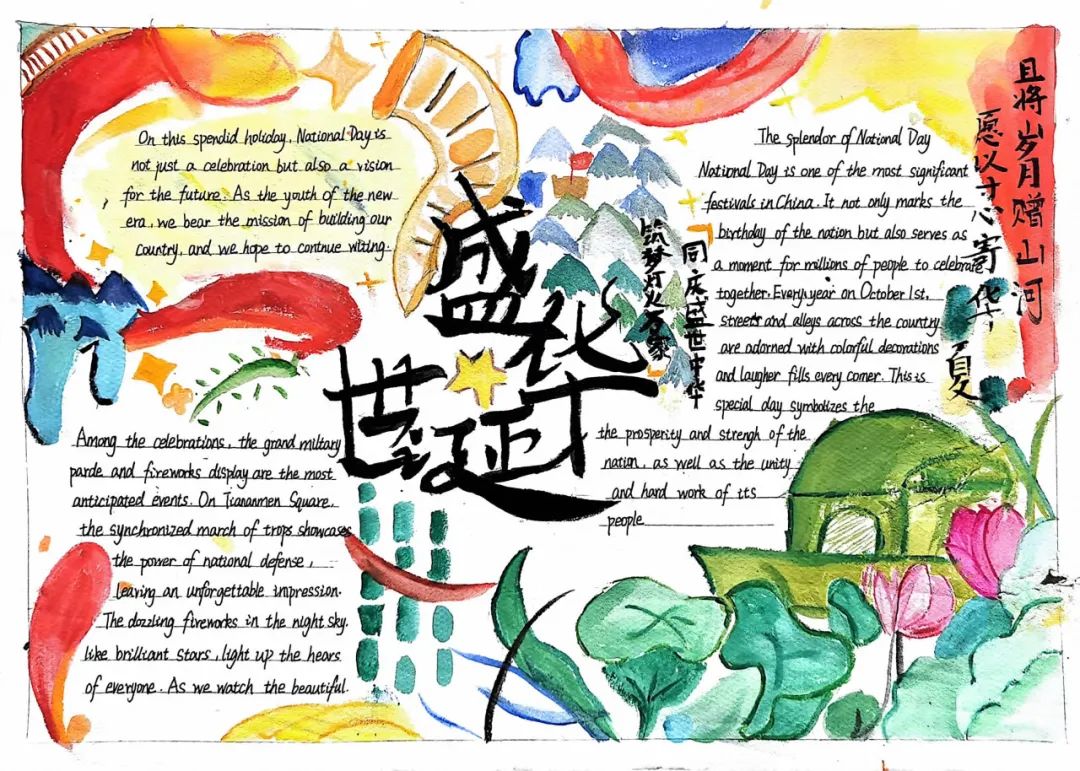 On this spendid holiday, National Day is
not just a celebration but also a vision
for the future. As the youth of the new
era, we bear the mission of building our
country, and we hope to continue witing.
盛
世华诞
筑梦灯火万家
同庆盛世中华
且将岁月赠山河
愿以寸心寄华夏
The splendor of National Day
National Day is one of the most significant
festivals in China. It not only marks the
birthday of the nation but also serves as
a moment for millions of people to celebrate
together. Every year on October 1st,
streets and alleys across the country
are adorned with colorful decorations
and laugher fills every corner. This is
special day symbolizes the
the prosperity and strengh of the
nation, as well as the unity
and hard work of its
people
Among the celebrations, the grand military
parde and fireworks display are the most
anticipated events. On Tiananmen Square,
the synchronized march of trops showcases
the power of national defense,
leaving an unforgettable impression.
The dazzling fireworks in the night sky,
like brilliant stars, light up the hears
of everyone. As we watch the beautiful.